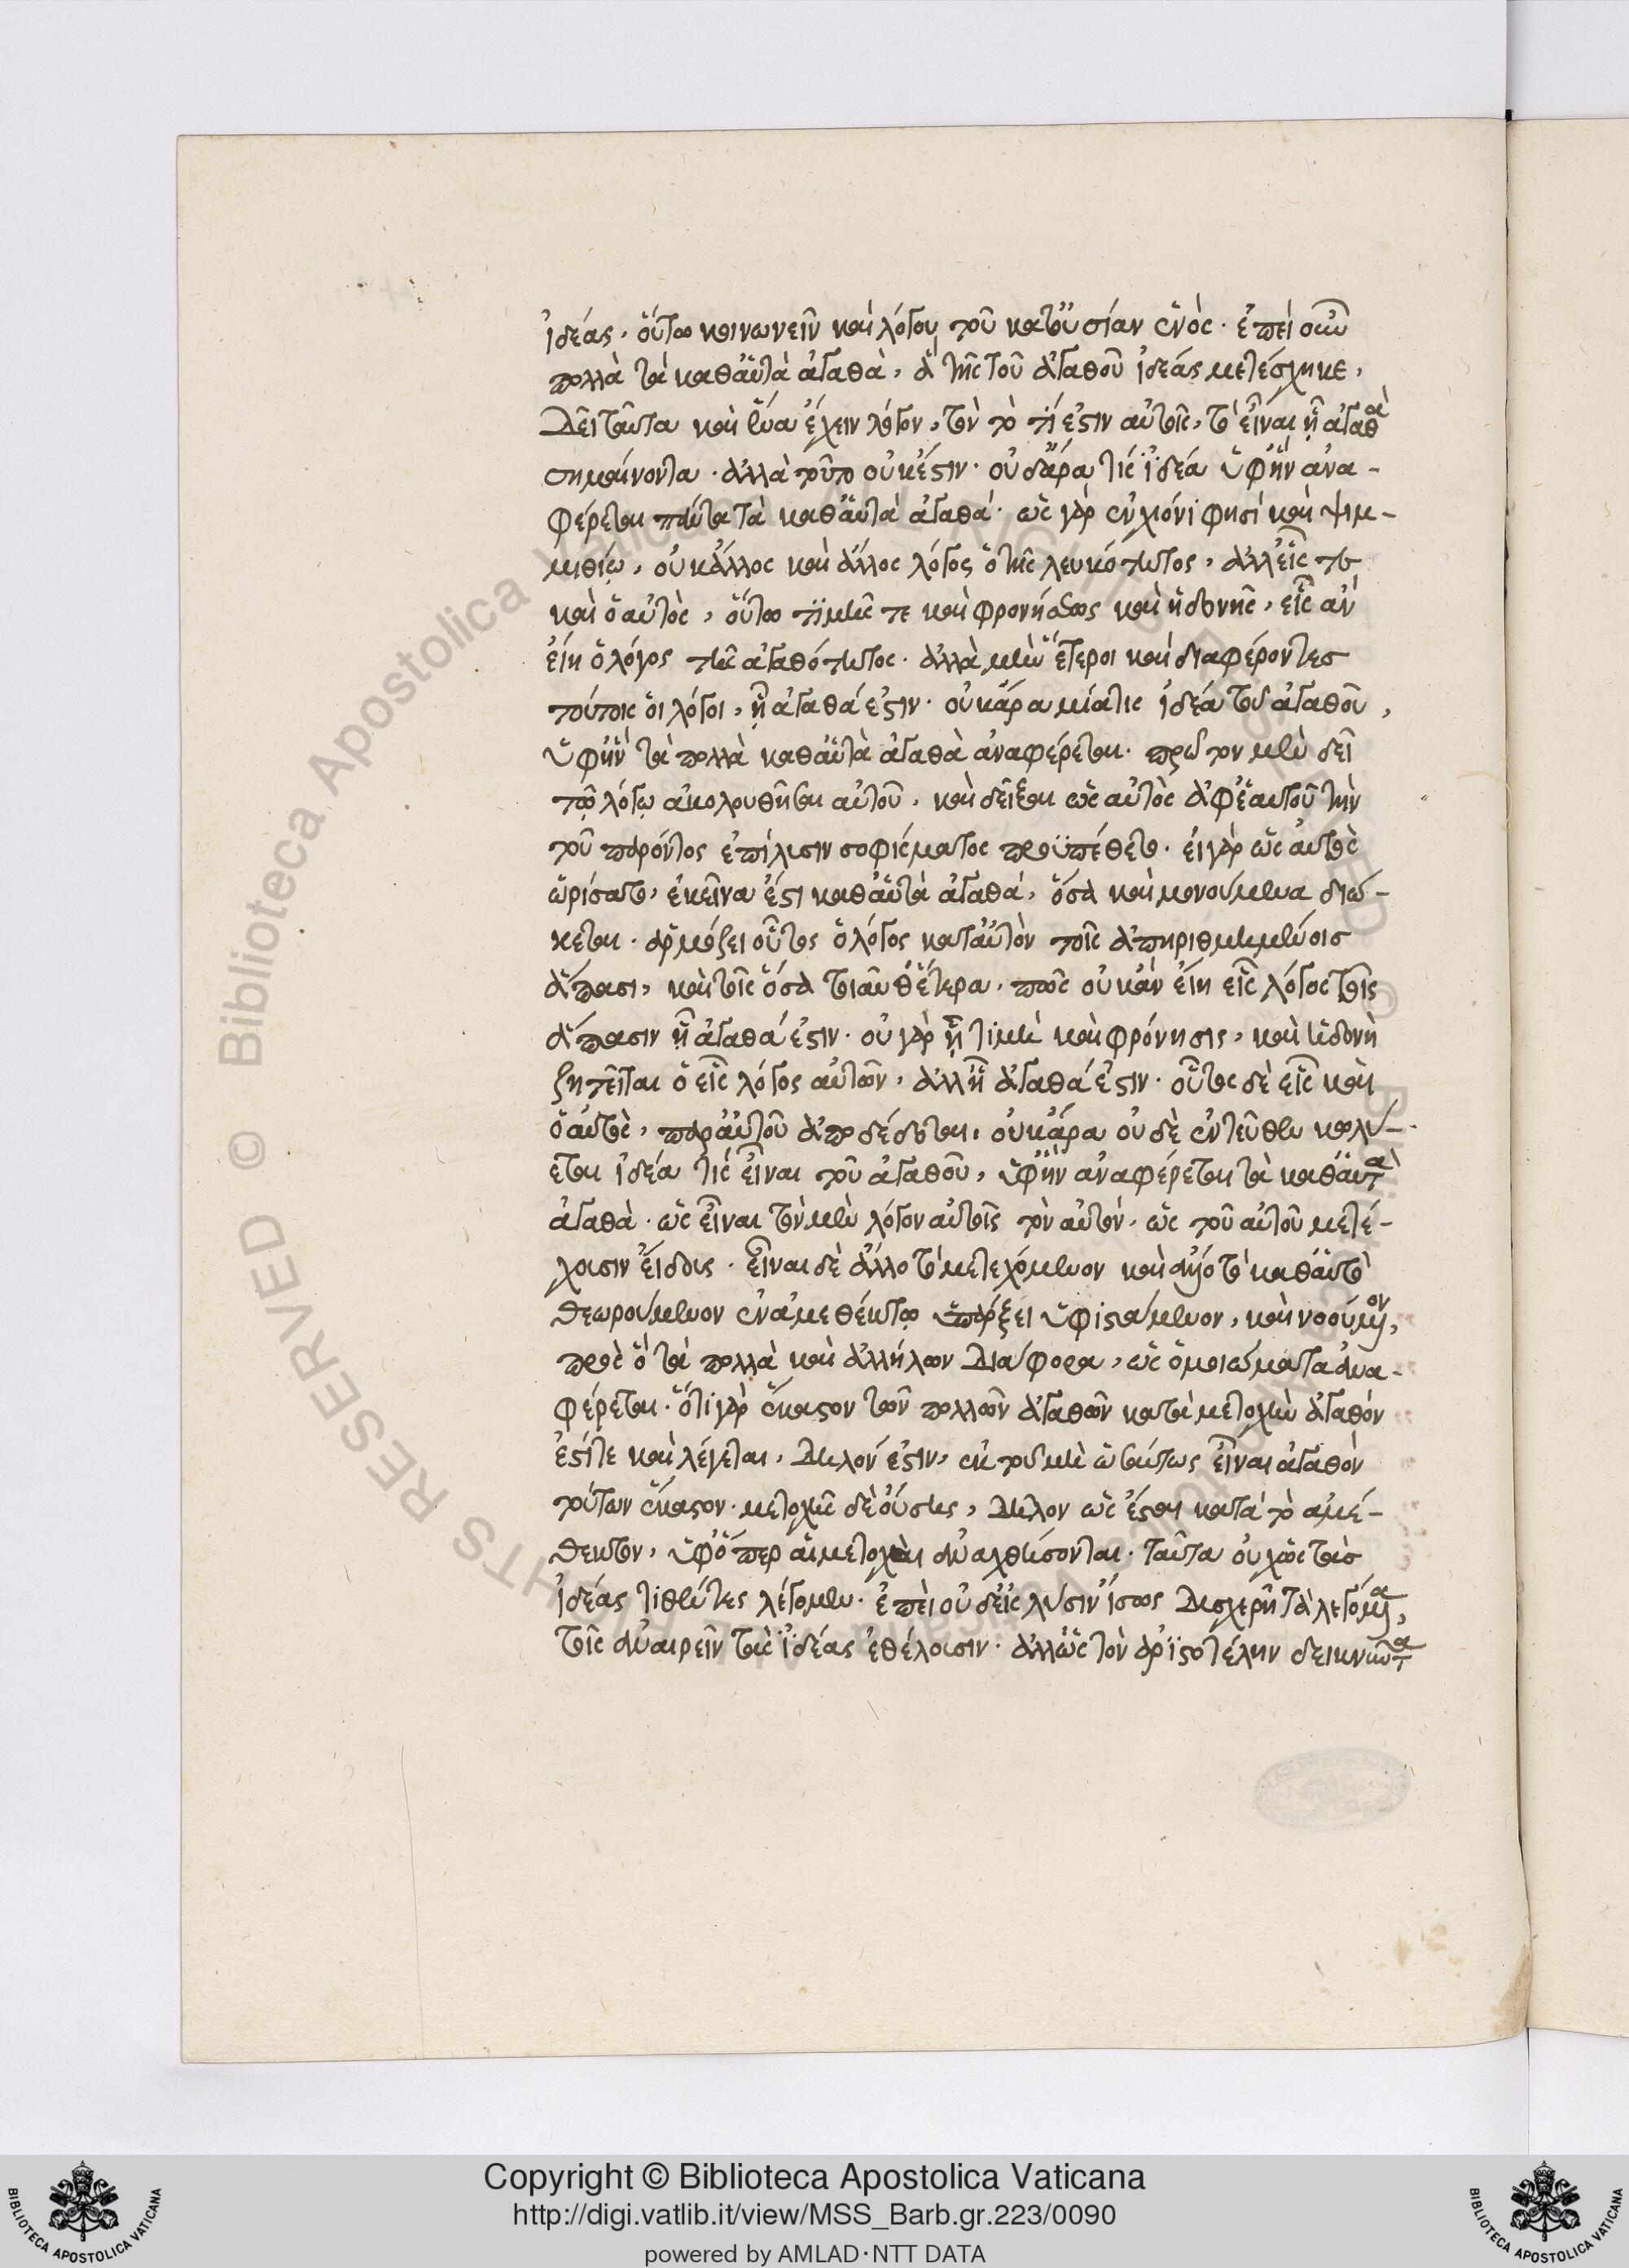 ἰδέας, οὕτω κοινωνεῖν καὶ λόγου τοῦ κατ' οὐσίαν ἑνός. ἐπεὶ οὖν
πολλὰ τὰ καθ' αὑτὰ ἀγαθὰ, ἃ τῆς τοῦ ἀγαθοῦ ἰδέας μετέσχηκε,
δεῖ ταῦτα καὶ ἕνα ἔχειν λόγον, τὸν τὸ τί ἐστιν αὐτοῖς, τὸ εἶναι ᾗ ἀγαθὰ
σημαίνοντα. ἀλλὰ τοῦτο οὐκ ἔστιν. οὐδ' ἄρα τίς ἰδέα ὑφ' ἣν ἀνα-
φέρεται πάντα τὰ καθ' αὑτὰ ἀγαθά. ὡς γὰρ ἐν χιόνι φησὶ καὶ ψιμ-
μιθίῳ, οὐκ ἄλλος καὶ ἄλλος λόγος ὁ τῆς λευκότητος, ἀλλ' εἷς τε
καὶ ὁ αὐτὸς, οὕτω τιμῆς τε καὶ φρονήσεως καὶ ἡδονῆς, εἷς ἂν
εἴη ὁ λόγος τῆς ἀγαθότητος. ἀλλὰ μὴν ἕτεροι καὶ διαφέροντες
τούτοις οἱ λόγοι, ᾗ ἀγαθά ἐστιν. οὐκ ἄρα μία τις ἰδέα τοῦ ἀγαθοῦ,
ὑφ' ἣν τὰ πολλὰ καθ' αὑτὰ ἀγαθὰ ἀναφέρεται. πρῶτον μὲν δεῖ
τῷ λόγῳ ἀκολουθῆσαι αὐτοῦ, καὶ δεῖξαι ὡς αὐτὸς ἀφ' ἑαυτοῦ τὴν
τοῦ παρόντος ἐπίλυσιν σοφίσματος προϋπέθετο. εἰ γὰρ ὡς αὐτὸς
ὡρίσατο, ἐκεῖνα ἐστὶ καθ' αὑτὰ ἀγαθά, ὅσα καὶ μονούμενα διώ-
κεται. ἁρμόζει οὗτος ὁ λόγος κατ' αὐτὸν τοῖς ἀπηριθμημένοις
ἅπασι, καὶ τοῖς ὅσα τοιαῦθ' ἕτερα. πῶς οὐκ ἂν εἴη εἷς λόγος τοῖς
ἅπασιν ᾗ ἀγαθά ἐστιν. οὐ γὰρ ᾗ τιμὴ καὶ φρόνησις, καὶ ἡδονὴ
ζητεῖται ὁ εἷς λόγος αὐτῶν, ἀλλ' ᾗ ἀγαθά ἐστιν. οὗτος δὲ εἷς καὶ
ὁ αὐτὸς, παρ' αὐτοῦ ἀποδέδοται. οὐκ ἄρα οὐδὲ ἐντεῦθεν κωλύ-
εται ἰδέα τίς εἶναι τοῦ ἀγαθοῦ, ὑφ' ἣν ἀναφέρεται τὰ καθ' αὑτὰ
ἀγαθὰ. ὡς εἶναι τὸν μὲν λόγον αὐτοῖς τὸν αὐτόν. ὡς τοῦ αὐτοῦ μετέ-
χουσιν εἴδους. εἶναι δὲ ἄλλο τὸ μετεχόμενον καὶ τὸ καθ' αὑτὸ
θεωρούμενον ἐν ἀμεθέκτῳ ὑπάρξει ὑφιστάμενον, καὶ νοούμενον,
πρὸς ὃ τὰ πολλὰ καὶ ἀλλήλων διάφορα, ὡς ὁμοιώματα ἀνα-
φέρεται. ὅτι γὰρ ἕκαστον τῶν πολλῶν ἀγαθῶν κατὰ μετοχὴν ἀγαθόν
ἐστί τε καὶ λέγεται, δῆλόν ἐστιν, ἐκ τοῦ μὴ ὡσαύτως εἶναι ἀγαθὸν
τούτων ἕκαστον. μετοχῆς δὲ οὔσης, δῆλον ὡς ἔσται κατὰ τὸ ἀμέ-
θεκτον, ὑφ' ὅπερ αἱ μετοχαὶ ἀναχθήσονται. ταῦτα οὐχ ὡς τὰς
ἰδέας τιθέντες λέγομεν. ἐπεὶ οὐδ' εἰς λύσιν ἴσως δυσχερῆ τὰ λεγόμενα,
τοῖς ἀναιρεῖν τὰς ἰδέας ἐθέλουσιν. ἀλλ' ὡς τὸν ἀριστοτέλην δεικνῦντα
Copyright © Biblioteca Apostolica Vaticana
http://digi.vatlib.it/view/MSS_Barb.gr.223/0090
powered by AMLAD·NTT DATA